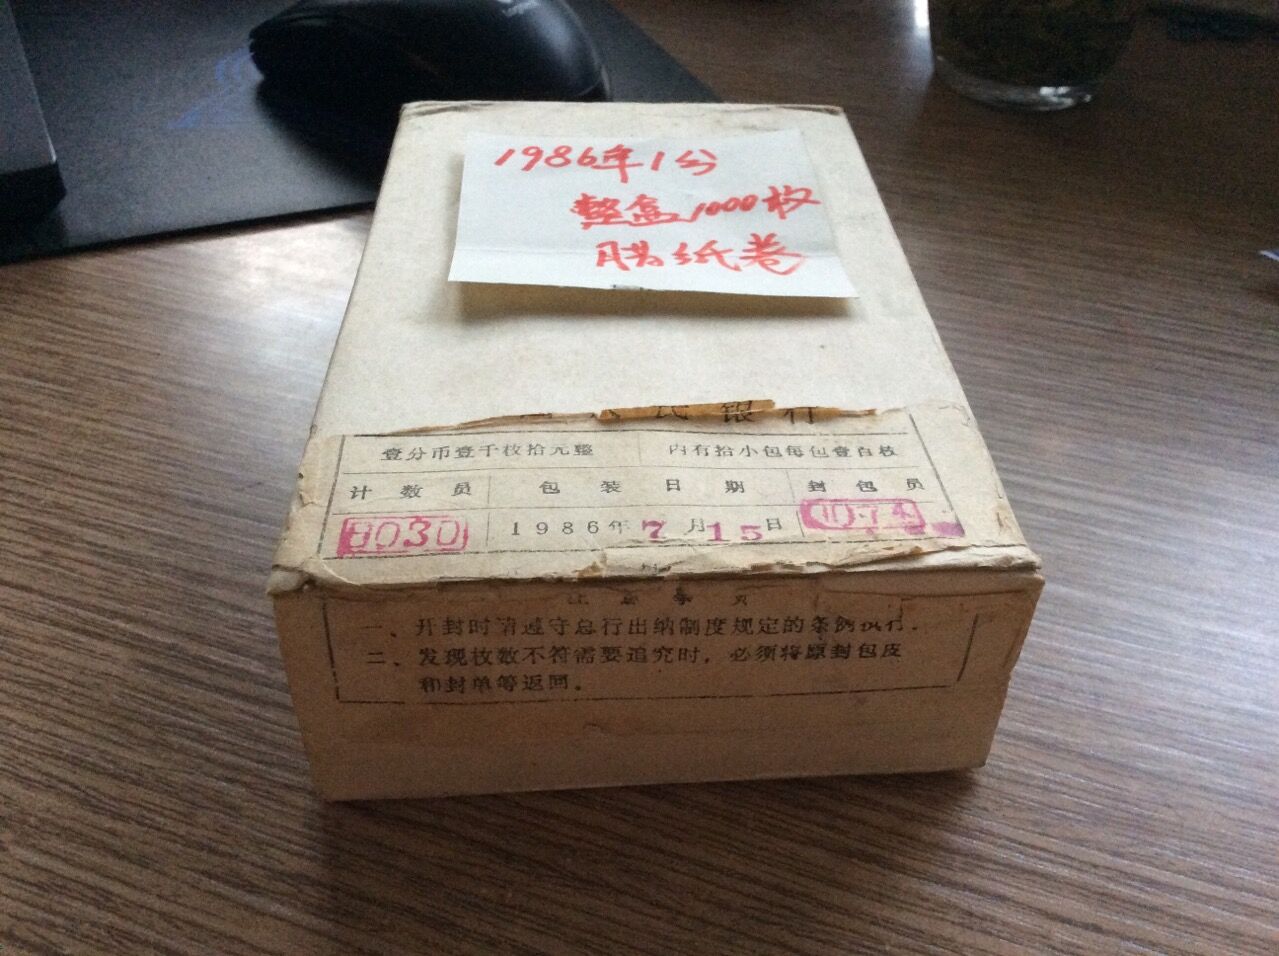 1986年1分
整盒1000枚
腊纸卷
民银行
壹分币壹千枚拾元整 内有拾小包每包壹百枚
计数员 包装日期 封包员
8030 1986年7月15日
注意事项
一、开封时请遵守总行出纳制度规定的条例执行.
二、发现枚数不符需要追究时，必须将原封包皮
和封单等返回。